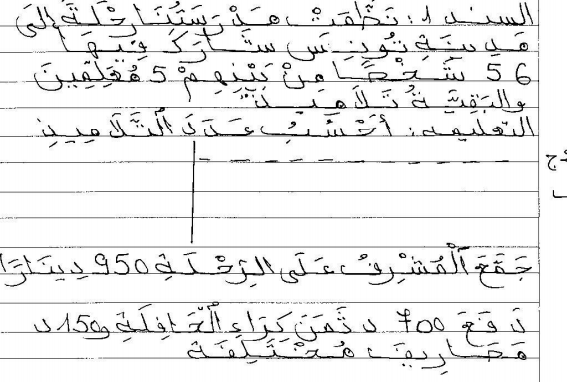 السند 1: نَظَّمَتْ مَدْرَسَتُنَا رِحْلَةً إِلَى
مَدِينَةِ تُونِسَ شَارَكَ فِيهَا
56 شَخْصًا مِنْ بَيْنِهِمْ 5 مُعَلِّمِينَ
والبَقِيَّةُ تَلَامِيذ
التعليمة: أَحْسُبُ عَدَدَ الْتَّلَامِيذِ
جَمَّعَ الْمُشْرِفُ عَلَى الرِّحْلَةِ 950 دِينَارًا
دَفَعَ 700 د ثَمَنَ كِرَاءِ الْحَافِلَةِ و 150 د
مَصَارِيفَ مُخْتَلِفَة